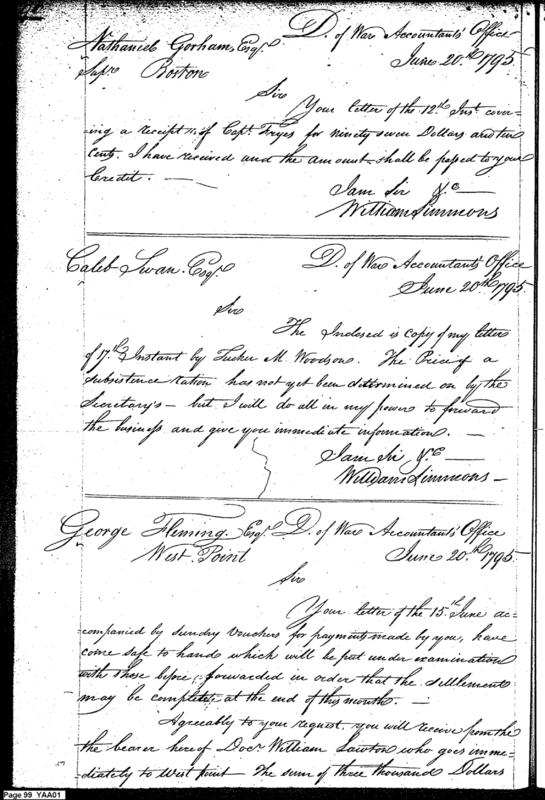 Nathaniel Gorham, Esqr. D. of War Accountants' Office
Supr. Boston June 20th 1795
Sir
Your letter of the 12th Inst. cover-
ing a receipt of Capt. Fryes for ninety seven Dollars and ten
cents. I have received and the amount shall be passed to your
Credit. —
I am Sir &c —
William Simmons
Caleb Swan. Esqr. D. of War Accountants' Office
June 20th 1795.
Sir
The Inclosed is copy of my letter
of 17th Instant by Tucker M. Woodson. The Price of a
subsistence Ration has not yet been determined on by the
Secretary's — but I will do all in my power to forward
the business and give you immediate information. —
I am Sir &c —
William Simmons —
George Fleming. Esqr. D. of War Accountants' Office
West Point June 20th 1795.
Sir
Your letter of the 15th June ac-
companied by sundry vouchers for payments made by you, have
come safe to hand which will be put under examination
with those before forwarded in order that the settlements
may be complete at the end of this month. —
Agreeably to your request, you will receive from the
the bearer hereof Docr. William Lawton who goes imme-
diately to West point — The sum of three thousand Dollars
Page 99 YAA01